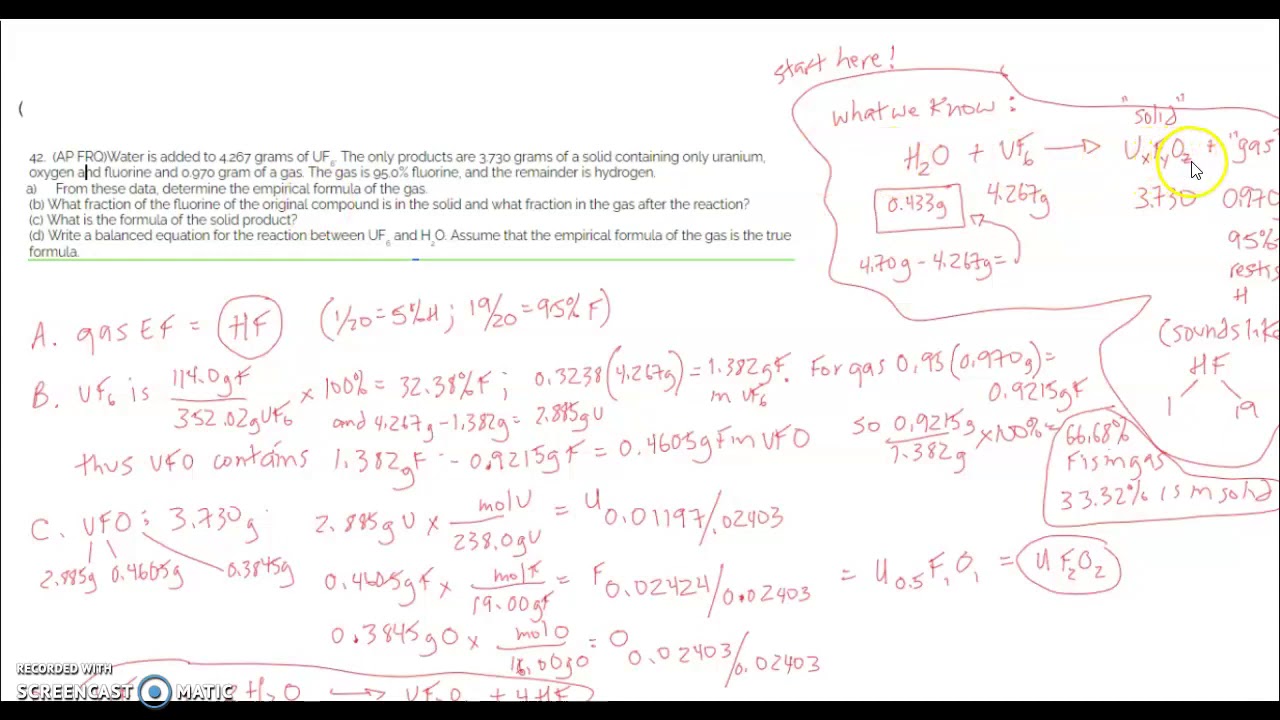 (
42. (AP FRQ)Water is added to 4.267 grams of UF6. The only products are 3.730 grams of a solid containing only uranium,
oxygen and fluorine and 0.970 gram of a gas. The gas is 95.0% fluorine, and the remainder is hydrogen.
a) From these data, determine the empirical formula of the gas.
(b) What fraction of the fluorine of the original compound is in the solid and what fraction in the gas after the reaction?
(c) What is the formula of the solid product?
(d) Write a balanced equation for the reaction between UF6 and H2O. Assume that the empirical formula of the gas is the true
formula.
start here!
what we know:
"solid"
H2O + UF6 → UxFyOz + "gas"
0.433g 4.267g 3.730 0.970
4.70g - 4.267g =
95%
rest is
H
(sounds like
HF
1 19
A. gas EF = HF (1/20 = 5% H ; 19/20 = 95% F)
B. UF6 is 114.0gF / 352.02gUF6 x 100% = 32.38%F ; 0.3238(4.267g) = 1.382gF in UF6.
and 4.267g - 1.382g = 2.885gU
For gas 0.95(0.970g) =
0.9215gF
thus UFO contains 1.382gF - 0.9215gF = 0.4605gF in UFO
so 0.9215g / 1.382g x 100% =
66.68%
F is in gas
33.32% is in solid
C. UFO: 3.730g
2.885g 0.4605g 0.3845g
2.885gU x molU / 238.0gU = U 0.01197/.02403
0.4605gF x molF / 19.00gF = F 0.02424/0.02403
0.3845gO x molO / 16.00gO = O 0.02403/0.02403
= U0.5F1O1 = UF2O2
H2O → UF2O2 + 4HF
RECORDED WITH
SCREENCAST MATIC